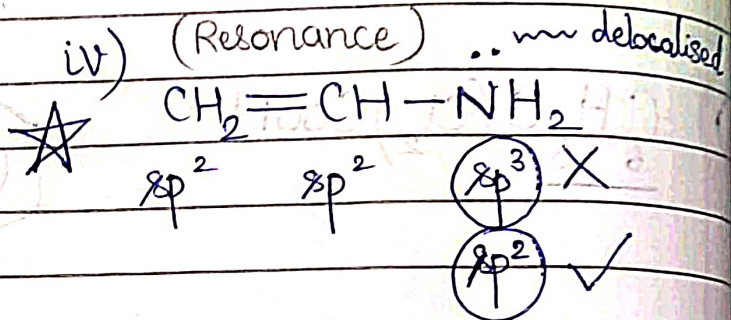 iv) (Resonance) .. delocalised
☆ CH₂=CH-NH₂
sp² sp² sp³ X
sp² ✓